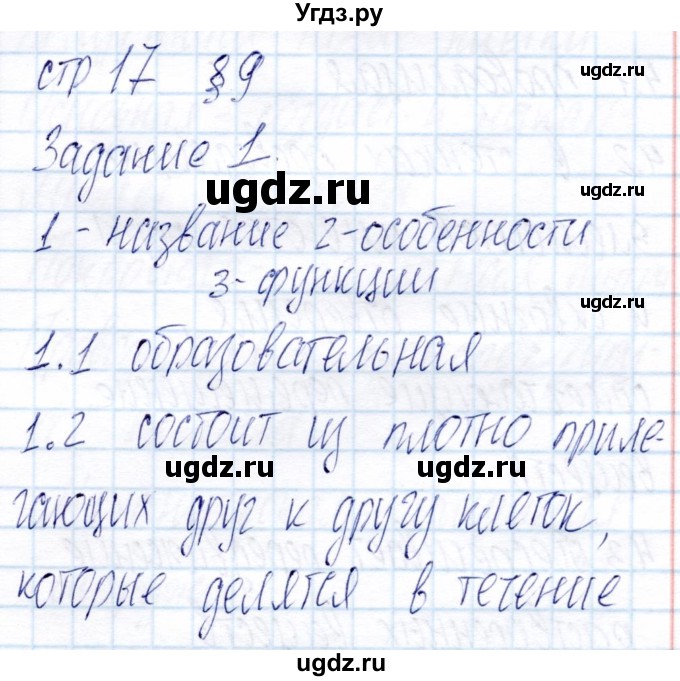 Угдз.ру
стр 17 § 9
ugdz.ru
Задание 1.
ugdz.ru
ugdz.ru
1 - название 2 - особенности
3 - функции
ugdz.ru
1.1 образовательная
1.2 состоит из плотно приле-
ugdz.ru ugdz.ru
гающих друг к другу клеток,
которые делятся в течение
ugdz.ru